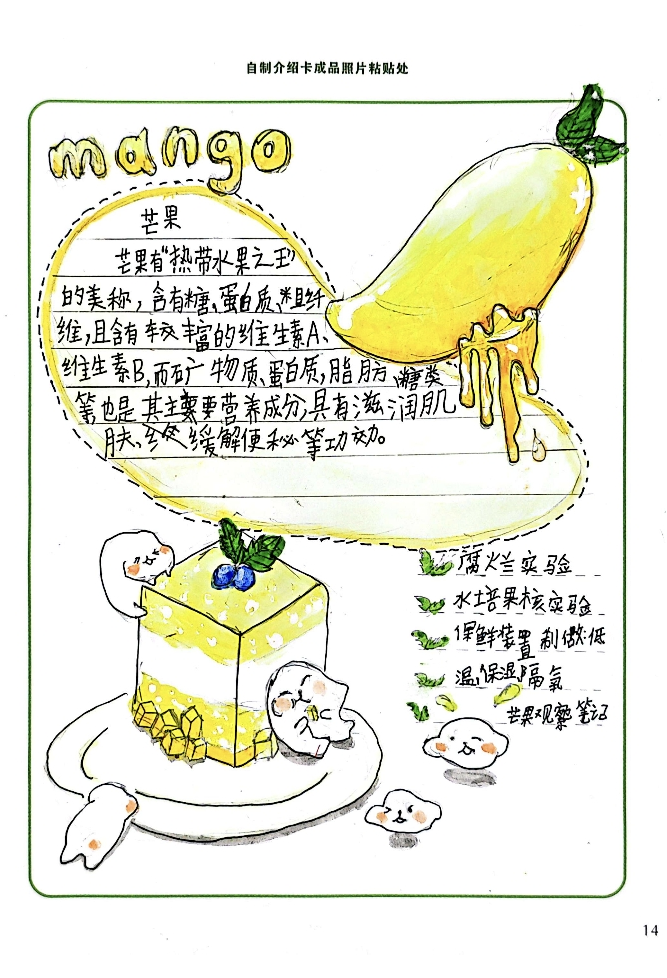 自制介绍卡成品照片粘贴处
mango
芒果
芒果有“热带水果之王”
的美称，含有糖、蛋白质、粗纤
维，且含有较丰富的维生素A、
维生素B，而矿物质、蛋白质，脂肪、糖类
等也是其主要营养成分，具有滋润肌
肤、缓解便秘等功效。
腐烂实验
水培果核实验
保鲜装置制做：低
温、保湿、隔氧
芒果观察笔记
14